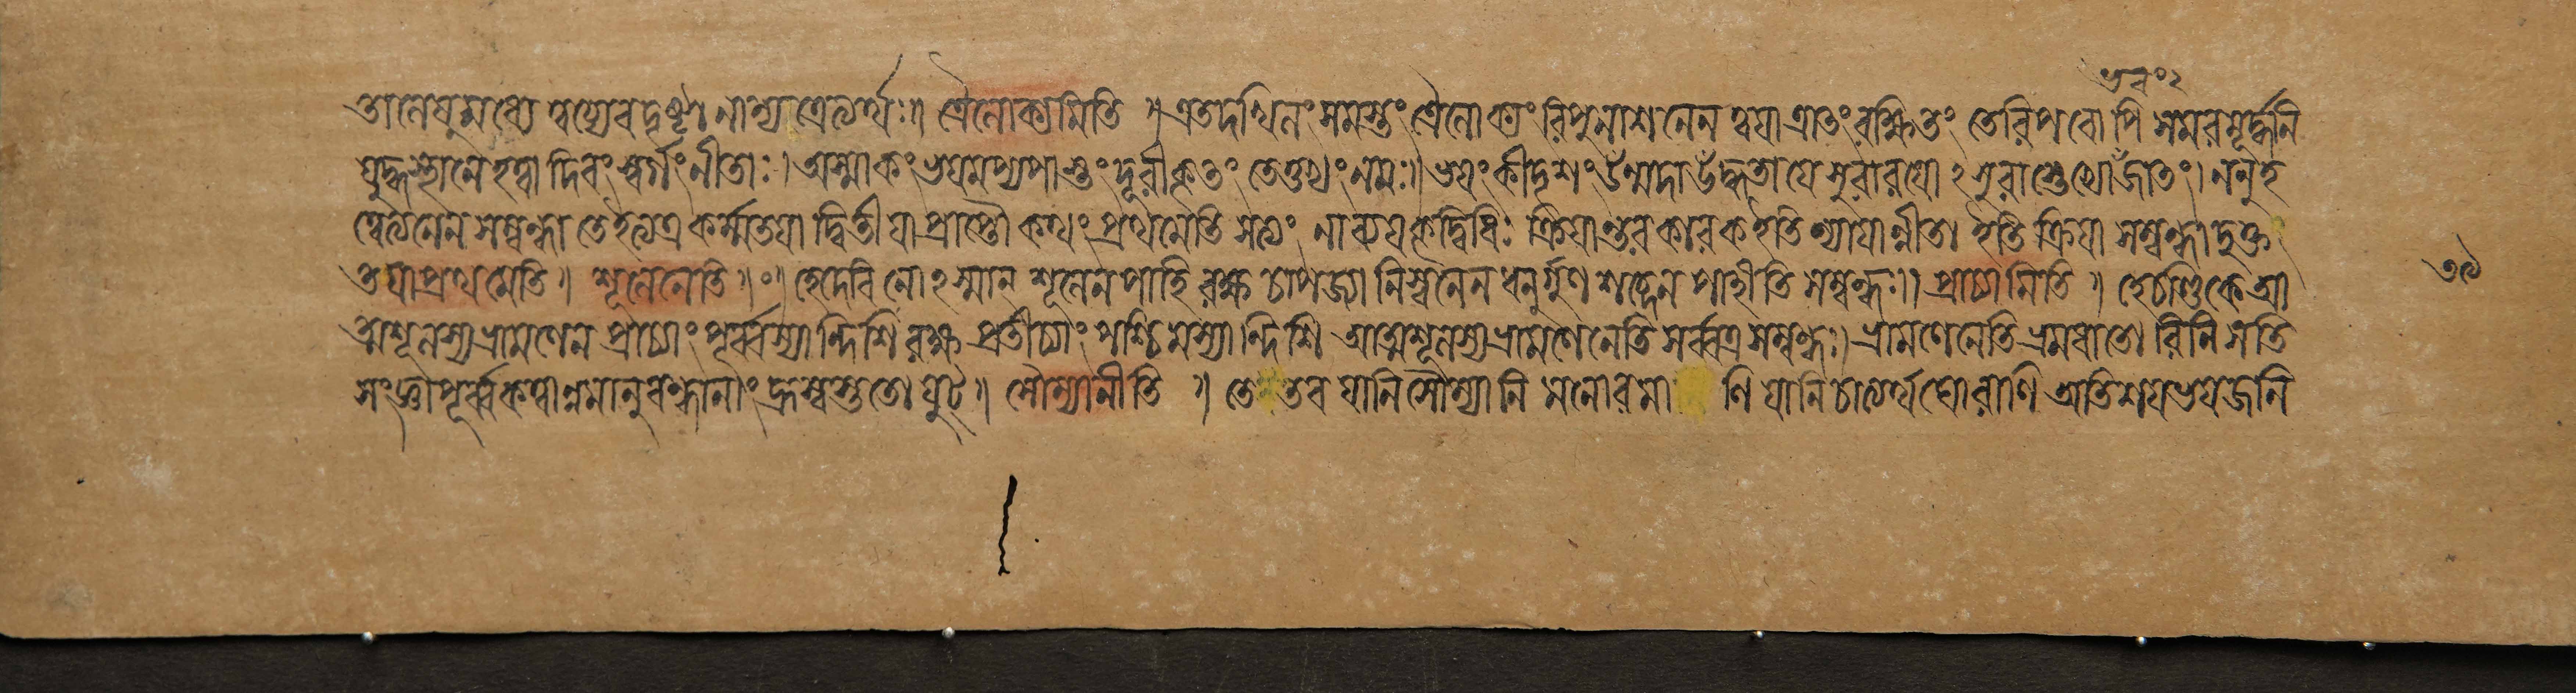 তানেষুমধ্যে ত্বয্যেবদৃষ্টা নান্যত্রেত্যর্থঃ॥ ত্রৈলোক্যমিতি ॥ এতদখিলং সমস্তং ত্রৈলোক্যং রিপুনাশনেন ত্বযা ত্রাতং রক্ষিতং তেরিপবোপি সমরমূর্দ্ধনি
যুদ্ধস্থানে হত্বা দিবং স্বর্গং নীতাঃ। অস্মাকং ভযমপ্যপাস্তং দূরীকৃতং তেতুভ্যং নমঃ॥ ভযং কীদৃশং উন্মদা উদ্ধতা যে সুরারযো ঽসুরাস্তেভ্যো জাতং। ননু হ
ত্বেত্যনেন সম্বন্ধা তেইত্যত্র কর্ম্মতযা দ্বিতীযা প্রাপ্তৌ কথং প্রথমেতি সত্যং ক্রিযান্তর কারক ইতি ন্যাযান্নীতা ইতি ক্রিযা সম্বন্ধাদুক্ত
তযা প্রথমেতি॥ শূলেনেতি॥ হেদেবি নোঽস্মান শূলেন পাহি রক্ষ চাপজ্যা নিস্বনেন ধনুর্গুণ শব্দেন পাহীতি সম্বন্ধঃ॥ প্রাচ্যামিতি ॥ হেচণ্ডিকে আ
ত্মশূলস্য ভ্রামণেন প্রাচ্যাং পূর্ব্বস্যান্দিশি রক্ষ প্রতীচ্যাং পশ্চিমস্যান্দিশি আত্মশূলস্য ভ্রামণেনেতি সর্ব্বত্র সম্বন্ধঃ। ভ্রামণেনেতি ভ্রমধাতো রিনিসতি
সংজ্ঞাপূর্ব্বকত্বান্নমানুবন্ধানাং হ্রস্বস্ততো যুট্॥ সৌম্যানীতি ॥ তে তব যানি সৌম্যানি মনোরমাণি যানি চাত্যর্থ ঘোরাণি অতিশয ভযজনি
৩৯